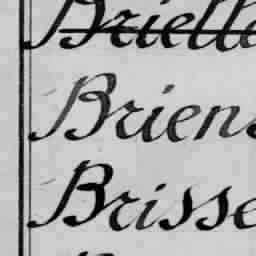 Brielle
Briens
Brisse